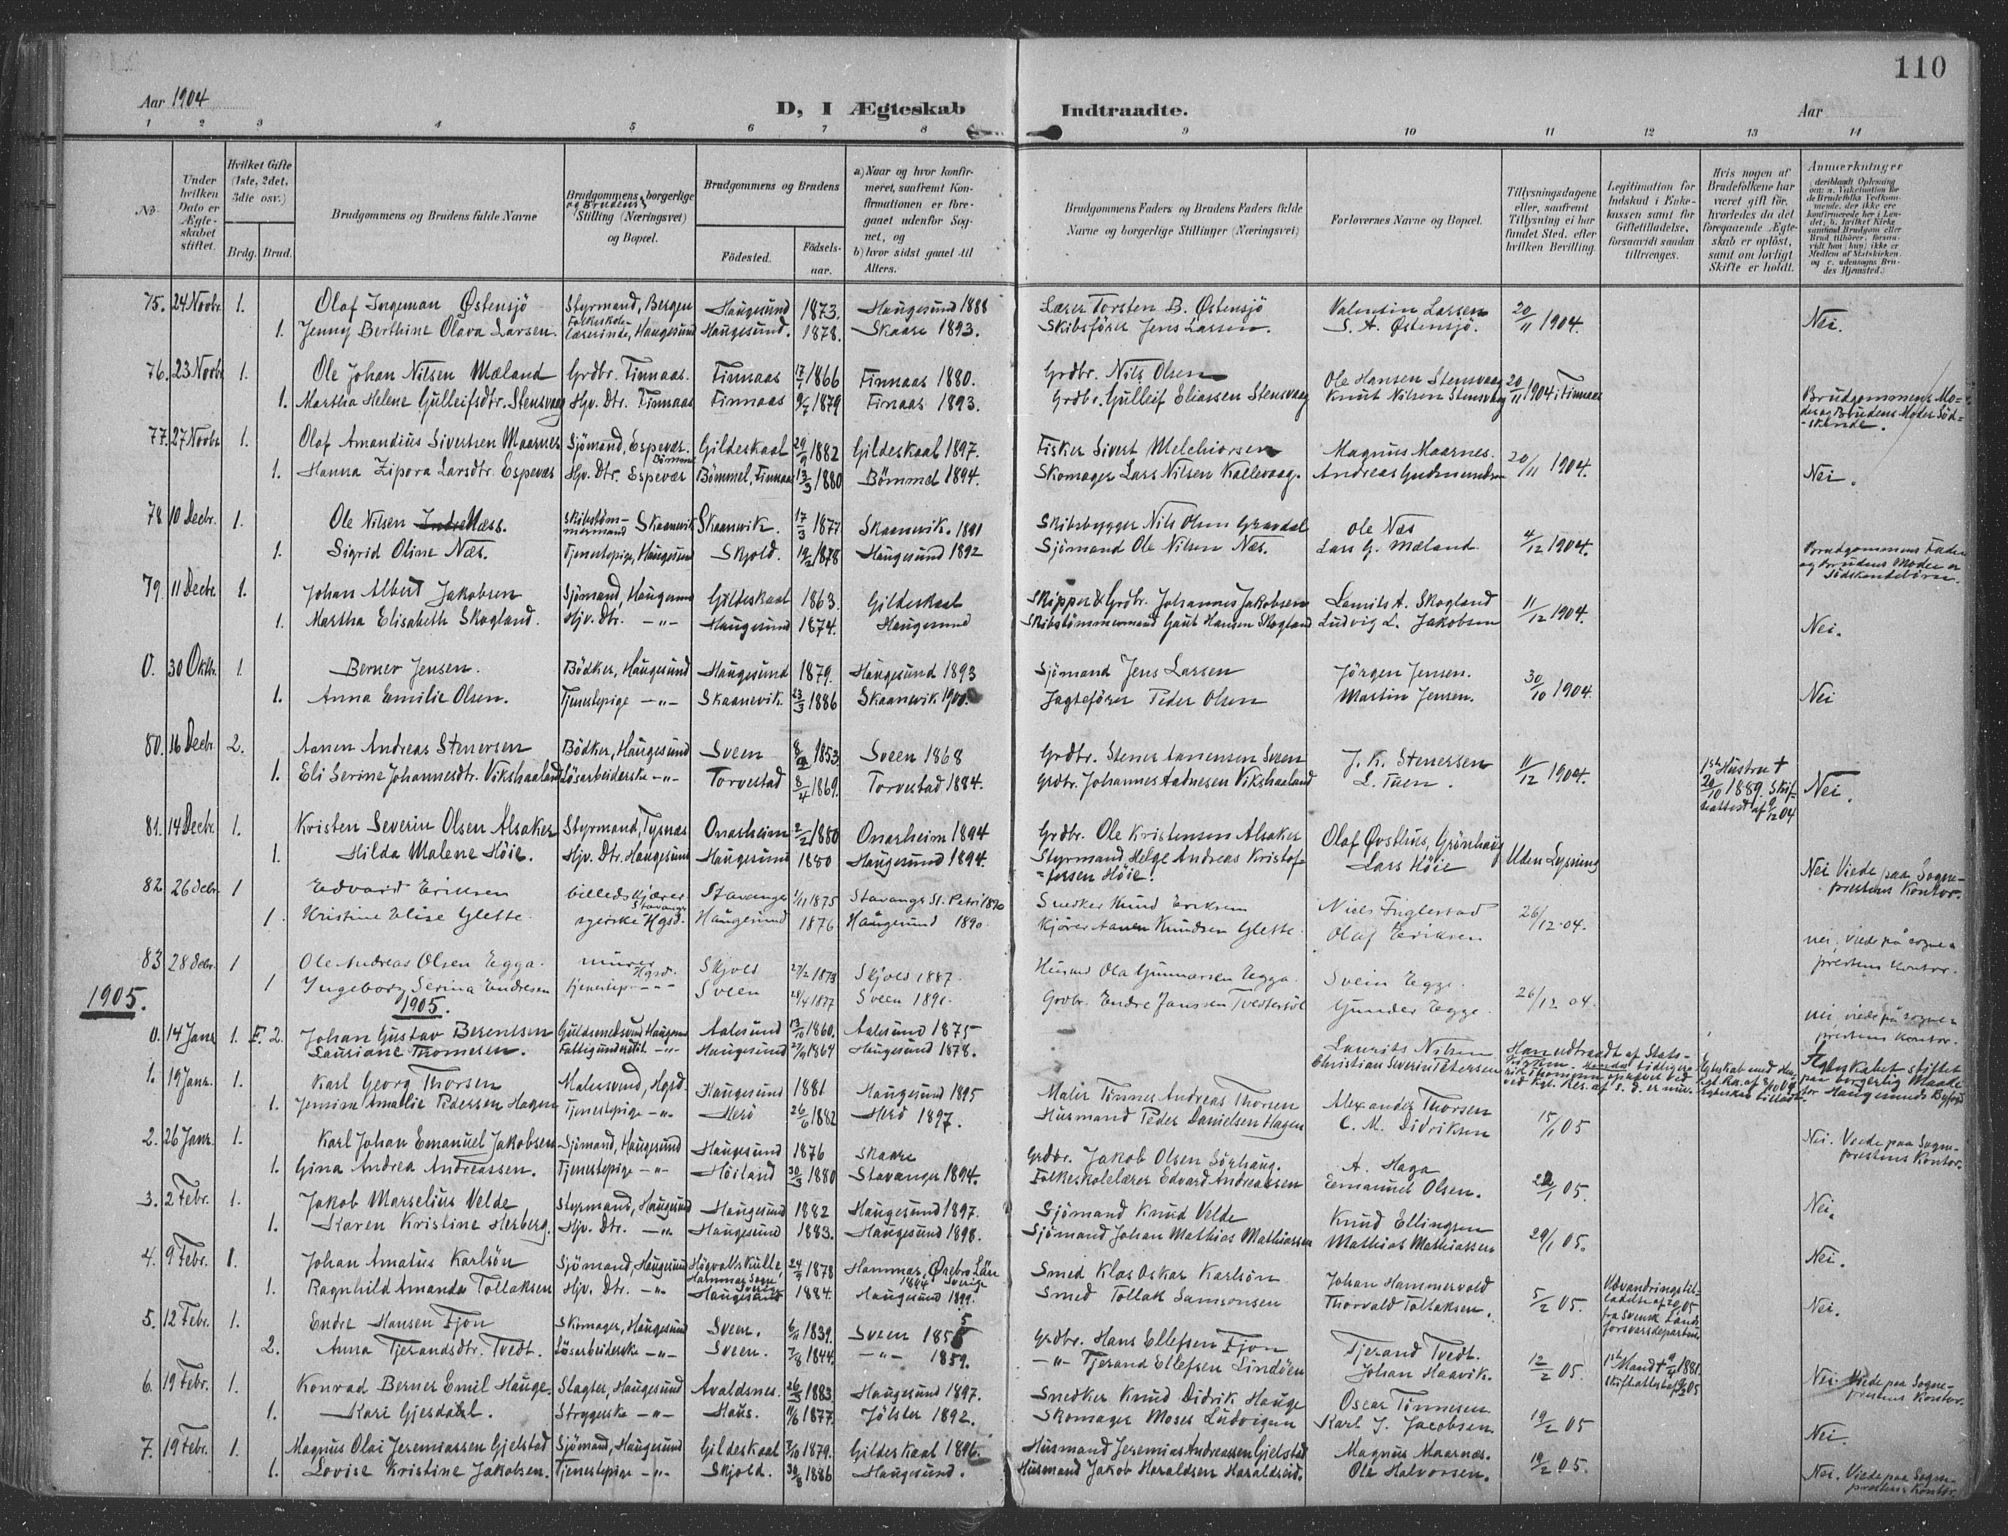 110
Aar 1904
D, I Ægteskab Indtraadte.
Aar
1 2 3 4 5 6 7 8 9 10 11 12 13 14
No.
Under hvilken Dato er Ægteskabet stiftet.
Hvilket Gifte (1ste, 2det, 3die osv.)
Brdg. Brud.
Brudgommens og Brudens fulde Navne
Brudgommens og Brudens borgerlige Stilling (Næringsvei) og Bopæl.
Brudgommens og Brudens
Fødested.
Fødselsaar.
a) Naar og hvor konfirmeret, saafremt Konfirmationen er foregaaet udenfor Sognet, og
b) hvor sidst gaaet til Alters.
Brudgommens Faders og Brudens Faders fulde Navne og borgerlige Stillinger (Næringsvei)
Forlovernes Navne og Bopæl.
Tillysningsdagene eller, saafremt Tillysning ei har fundet Sted, efter hvilken Bevilling.
Legitimation for Indskud i Enkekassen samt for Giftetilladelse, forsaavidt saadan tiltrænges.
Hvis nogen af Brudefolkene har været gift før, hvorledes da det foregaaende Ægteskab er opløst, samt om lovligt Skifte er holdt.
Anmerkninger
75. 24 Novbr. 1. Olaf Ingeman Østensjö Styrmand, Bergen Haugesund 1873. Haugesund 1888 Lærer Torsten B. Østensjö Valentin Larsen 20/11 1904. Nei.
1. Jenny Berthine Olava Larsen. Folkeskolelærerinde, Haugesund Haugesund. 1878. Skaare 1893. Skibsfører Jens Larsen. S. A. Østensjö.
76. 23 Novbr. 1. Ole Johan Nilsen Mæland Grdbr. Finnaas. Finnaas 17/1 1866 Finnaas 1880. Grdbr. Nils Olsen Ole Hansen Stensvaag 20/11 1904 i Finnaas Brudgommens Moder og Brudens Moder Södskende.
1. Martha Helene Gulleifsdtr. Stensvaag Hjv. Dtr. Finnaas Finnaas 9/7 1879 Finaas 1893. Grdbr. Gulleif Eliassen Stensvaag Knut Nilsen Stensvaag
77. 27 Novbr. 1. Olaf Amandius Sivertsen Maarnes Sjömand, Espevær Gildeskaal 29/9 1882 Gildeskaal 1897. Fisker Sivert Melchiorsen Magnus Maarnes. 20/11 1904. Nei.
1. Hanna Zipora Larsdtr. Espevær Hjv. Dtr. Espevær Bömmel, Finnaas 13/3 1880 Bömmel 1894. Skomager Lars Nilsen Kallevaag. Andreas Gudmundsen
78 10 Decbr. 1. Ole Nilsen Næss. Skibstömmermand Skaanevik Skaanevik. 17/3 1877 Skaanevik. 1891 Skibsbygger Nils Olsen Gravdal Ole Næs 4/12 1904. Brudgommens Fader og Brudens Moder er Södskendebörn.
1. Sigrid Oline Næs. Tjenestepige, Haugesund Skjold. 19/2 1878 Haugesund 1892 Sjömand Ole Nilsen Næs. Lars G. Mæland
79. 11 Decbr. 1. Johan Albert Jakobsen Sjömand, Haugesund Gildeskaal 1863. Gildeskaal Skipper & Grdbr. Johannes Jakobsen Laurits A. Skogland 11/12 1904. Nei.
1. Martha Elisabeth Skogland. Hjv. Dtr. —"— Haugesund 1874. Haugesund Skibstömmermand Gaut Hansen Skogland Ludvig L. Jakobsen
0. 30 Oktbr. 1. Berner Jensen. Bödker, Haugesund Haugesund 1879. Haugesund 1893 Sjömand Jens Larsen Jörgen Jensen. 30/10 1904. Nei
1. Anna Emilie Olsen. Tjenestepige —"— Skaanevik 23/3 1886 Skaanevik 1900. Jagtefører Peder Olsen Martin Jensen.
80. 16 Decbr. 2. Aanen Andreas Stenersen Bödker, Haugesund Sveen 1853. Sveen 1868 Grdbr. Stener Aanensen Sveen J. K. Stenersen 11/12 1904. 1ste Hustru † 20/10 1889. Skifteattest af 9/12 04 Nei.
1. Eli Serine Johannesdtr. Vikshaaland Lösarbeiderske —"— Torvestad 8/4 1869. Torvestad 1884. Grdbr. Johannes Aadnesen Vikshaaland L. Tuen.
81. 14 Decbr. 1. Kristen Severin Olsen Alsaker Styrmand, Tysnæs Onarheim 1880 Onarheim 1894 Grdbr. Ole Kristensen Alsaker Olaf Øvsthus, Grönhaug Uden Lysning Nei Viede paa Sogneprestens Kontor.
1. Hilda Malene Höie. Hjv. Dtr. Haugesund Haugesund 1880 Haugesund 1894. Styrmand Helge Andreas Kristoffersen Höie. Lars Höie
82. 26 Decbr. 1 Edvard Eriksen billedskjærer Stavanger Stavanger 1/11 1875 Stavanger St. Petri 1890 Snedker Knud Eriksen Niels Fuglestad 26/12 - 04. nei, viede på sogneprestens kontor.
1. Kristine Elise Glette. syerske Hgsd. Haugesund 1876 Haugesund 1890. Kjører Aanen Knudsen Glette. Olaf Eriksen
83. 28 Decbr. 1 Ole Andreas Olsen Egga. murer Hgsd. Skjold 27/2 1873 Skjold 1887. Husmd Ola Gunnarsen Egga Svein Egge. 26/12 04. nei, viede på sogneprestens kontor.
1 Ingeborg Serina Endresen tjenestep. —"— Sveen 28/4 1877 Sveen 1891. Grdbr. Endre Janssen Tvedtersöl Gunder Egge.
1905.
1905.
0. 14 Janr. 1. F. 2. Johan Gustav Berentsen Guldsmedsvend Haugesund Aalesund 13/10 1860. Aalesund 1875 Laurits Nilsen
Lausiane Thomesen. Fattigunderstöt. —"— Haugesund 27/9 1864 Haugesund 1878. Christian Severin Petersen
Han udtraadt af Statskirken.
Ægteskabet stiftet paa borgerlig Maade for Haugesunds Byfoged
1. 19 Janr. 1. Karl Georg Thorsen Malersvend, Hgsd. Haugesund 1881 Haugesund 1895 Maler Tönnes Andreas Thorsen Alexander Thorsen 15/1 05 Nei. Viede paa Sogneprestens Kontor.
1. Jensine Amalie Pedersen Hagen Tjenestepige —"— Herö 26/6 1882 Herö 1897. Husmand Peder Danielsen Hagen C. M. Didriksen
2. 26 Janr. 1. Karl Johan Emanuel Jakobsen Sjömand, Haugesund Haugesund 1876 Skaare Grdbr. Jakob Olsen Sörhaug. A. Haga 22/1 05. Nei.
1. Gina Andrea Andreassen. Tjenestepige —"— Höiland 30/3 1880 Stavanger 1894. Folkeskolelærer Edvard Andreassen Emanuel Olsen.
3. 2 Febr. 1. Jakob Marselius Velde Styrmand, Haugesund Haugesund 1882 Haugesund 1897. Sjömand Knud Velde Knud Ellingsen 29/1 05. Nei.
1. Karen Kristine Herberg. Hjv. Dtr. —"— Haugesund 1883. Haugesund 1898. Sjömand Johan Mathias Mathiassen Mathias Mathiassen
4. 9 Febr. 1. Johan Amatus Karlsön Sjömand, Haugesund Högvaltskulle, Hammar Sogn Sverige 24/9 1878 Hammar, Örebro Län 1894 Sverige Smed Klas Oskar Karlsön Johan Hammervold 5/2 05. Udvandringstilladelse af 20/1 05 fra Svensk Landsforsvarsdepartement Nei.
1. Ragnhild Amanda Tollaksen Hjv. Dtr. —"— Haugesund 1884. Haugesund 1899. Smed Tollak Samsonsen Thorvald Tollaksen.
5. 12 Febr. 1. Endre Hansen Fjon Skomager, Haugesund Sveen. 1839. Sveen 1855 Grdbr. Hans Ellefsen Fjon Tjerand Tvedt. 12/2 05. 1ste Mand † 9/4 1881. Skifteattest 05 Nei. Viede paa Sogneprestens Kontor.
2. Anna Tjerandsdtr. Tvedt. Lösarbeiderske —"— Sveen. 7/8 1844. —"— 1859. —"— Tjerand Ellefsen Lindöen Johan Haavik.
6. 19 Febr. 1. Konrad Berner Emil Hauge. Slagter, Haugesund Avaldsnes. 1883 Haugesund 1897. Snedker Knud Didrik Hauge Oscar Tönnesen 19/2 05 Nei.
1. Kari Gjesdahl. Strygerske —"— Haus. 11/6 1877. Jölster 1892. Skomager Moses Ludvigsen Karl J. Jacobsen
7. 19 Febr. 1. Magnus Olai Jeremiassen Gjelstad Sjömand, Haugesund Gildeskaal 1879. Gildeskaal 1896. Husmand Jeremias Andreassen Gjelstad Magnus Maarnæs. 19/2 05. Nei. Viede paa Sogneprestens Kontor.
1. Lovise Kristine Jakobsen. Tjenestepige —"— Skjold. 30/8 1886 Haugesund. Husmand Jakob Haraldsen Haraldseid. Ole Halvorsen.